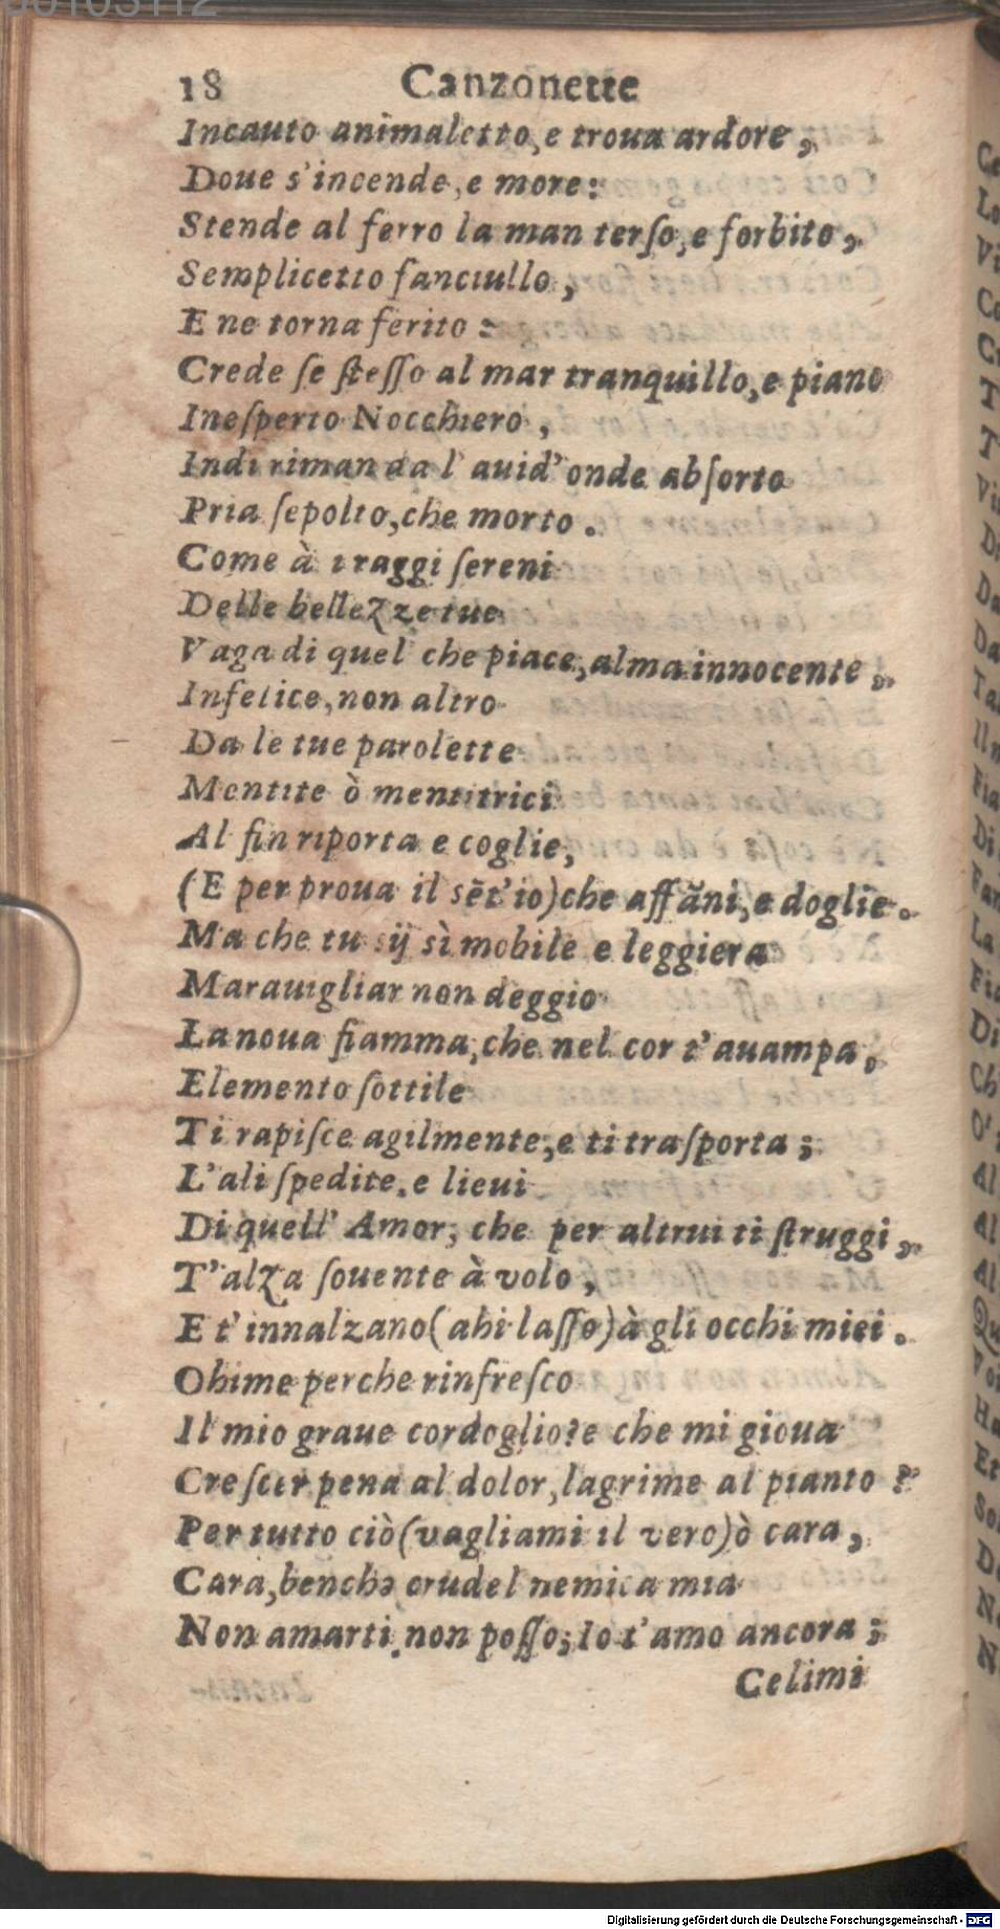 18 Canzonette
Incauto animaletto, e troua ardore,
Doue s'incende, e more:
Stende al ferro la man terſo, e forbito,
Semplicetto fanciullo,
E ne torna ferito:
Crede ſe ſteſſo al mar tranquillo, e piano
Ineſperto Nocchiero,
Indi riman da l'auid'onde abſorto
Pria ſepolto, che morto.
Come à i raggi ſereni
Delle bellezze tue
Vaga di quel che piace, alma innocente,
Infelice, non altro
Da le tue parolette
Mentite ò mentitrici
Al fin riporta e coglie,
(E per proua il sẽt'io) che affãni, e doglie.
Ma che tu sij sì mobile e leggiera
Marauigliar non deggio
La noua fiamma, che nel cor t'auampa,
Elemento ſottile
Ti rapiſce agilmente, e ti traſporta;
L'ali ſpedite, e lieui
Di quell' Amor, che per altrui ti ſtruggi,
T'alza ſouente à volo,
E t'innalzano (ahi laſſo) à gli occhi miei.
Ohime perche rinfreſco
Il mio graue cordoglio? e che mi gioua
Creſcer pena al dolor, lagrime al pianto?
Per tutto ciò (vagliami il vero) ò cara,
Cara, benche crudel nemica mia
Non amarti non poſſo; Io t'amo ancora;
Celimi
Digitalisierung gefördert durch die Deutsche Forschungsgemeinschaft - DFG